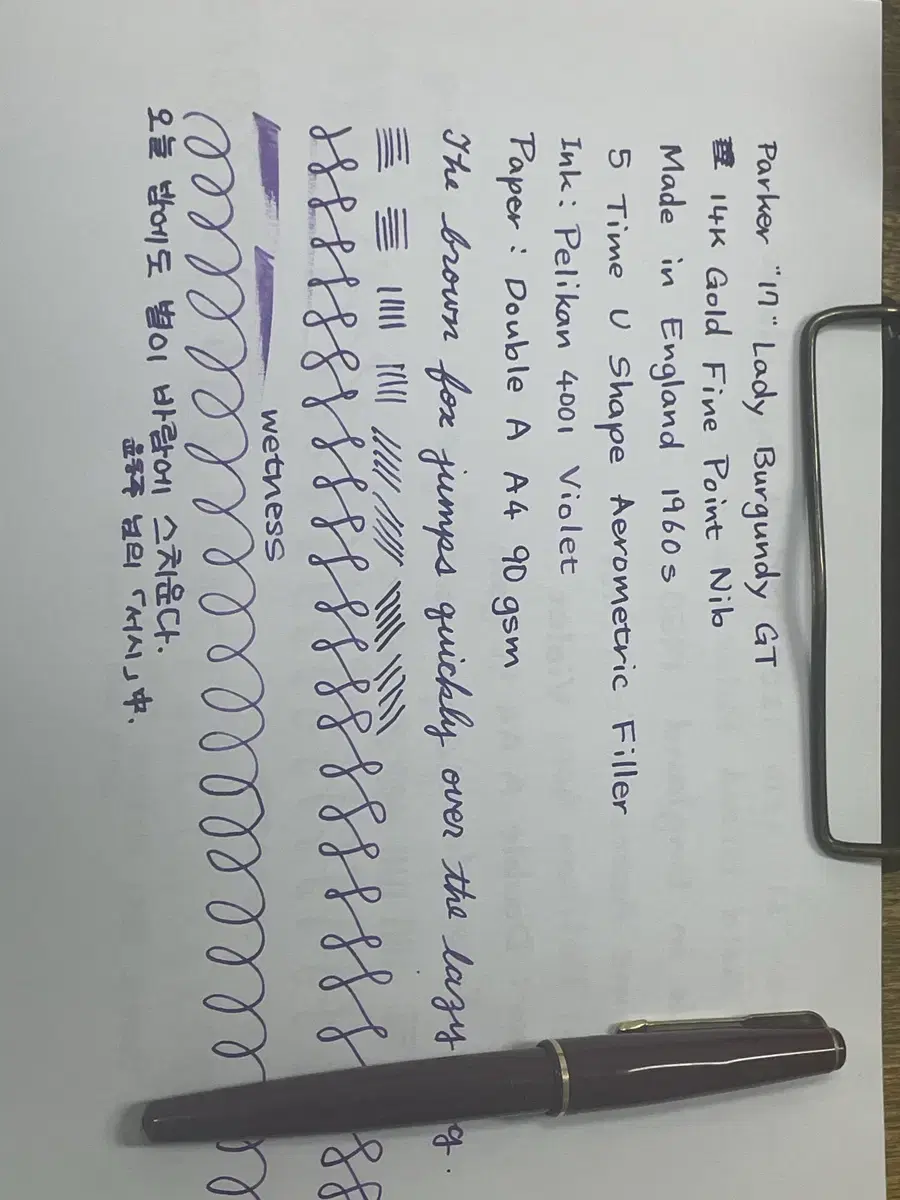 Parker "17" Lady Burgundy GT
14K Gold Fine Point Nib
Made in England 1960s
5 Time U Shape Aerometric Filler
Ink: Pelikan 4001 Violet
Paper: Double A A4 90gsm
The brown fox jumps quickly over the lazy g.
wetness
오늘 밤에도 별이 바람에 스치운다.
윤동주 님의 「서시」中.